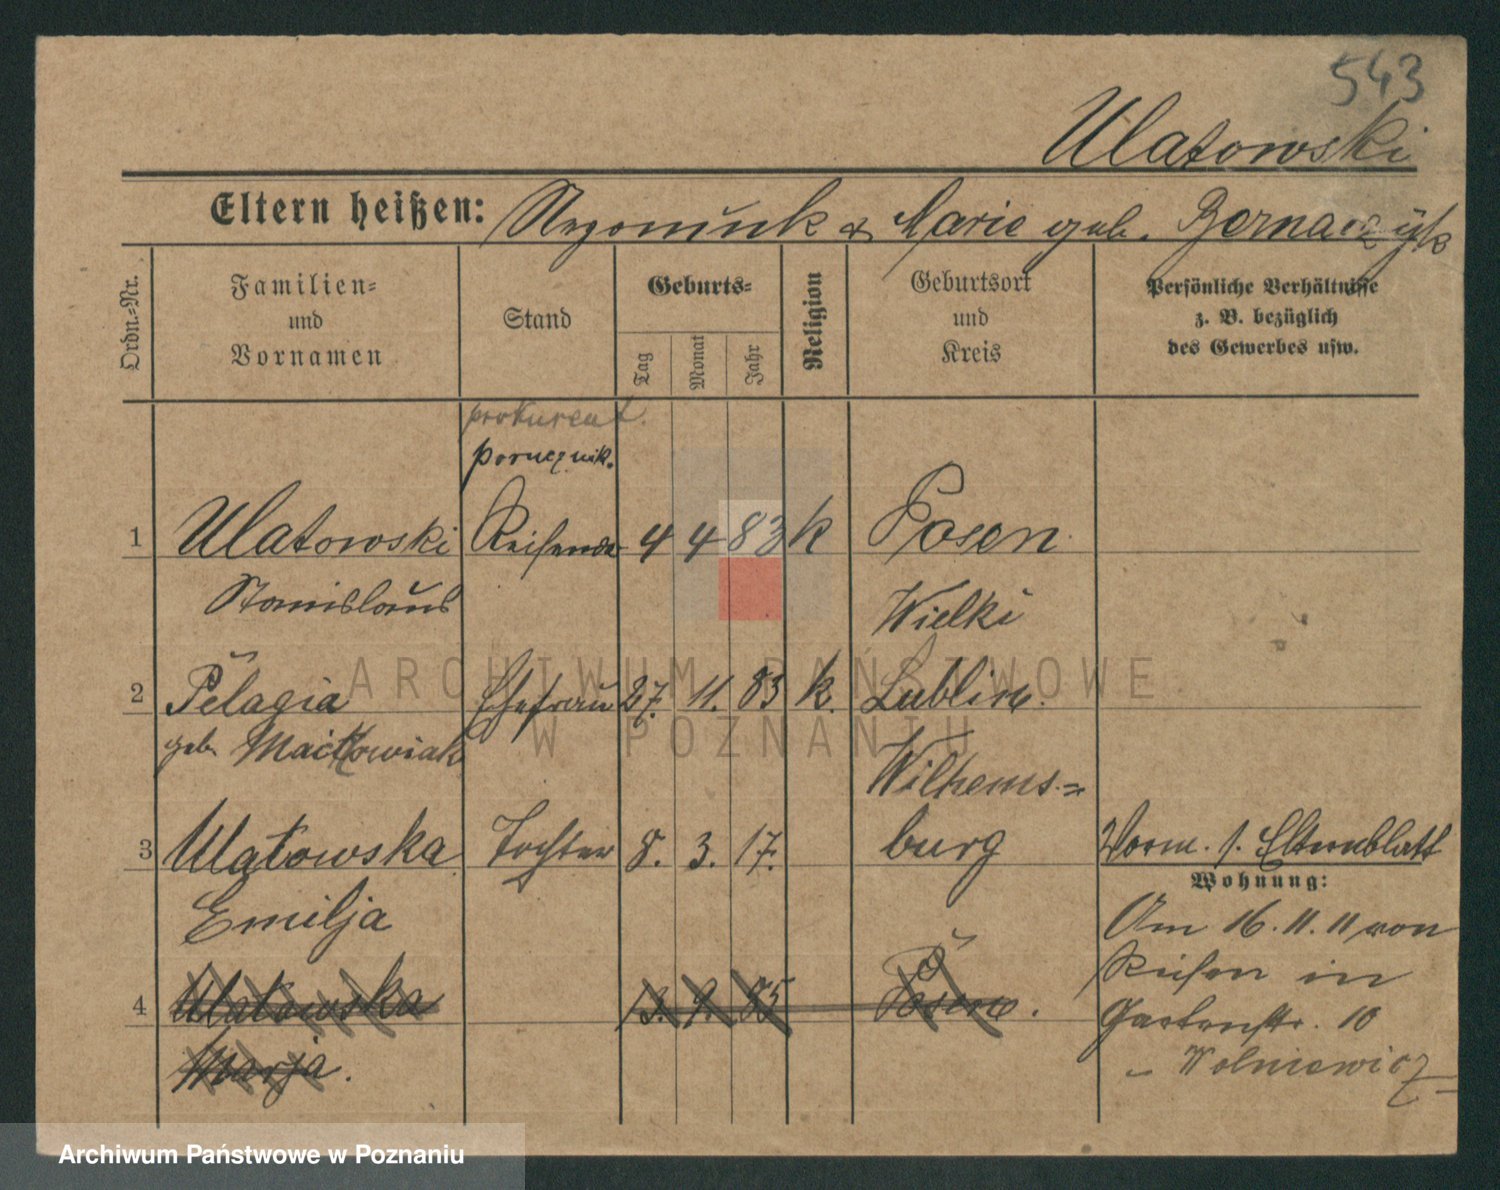 543
Ulatowski
Eltern heißen: & Marie geb. Bernaczyk
Ordn.-Nr.
Familien-
und
Vornamen
Stand
Geburts-
Tag
Monat
Jahr
Religion
Geburtsort
und
Kreis
Persönliche Verhältnisse
z. B. bezüglich
des Gewerbes usw.
prokurent.
porucznik.
1 Ulatowski Reisender 4 4 83 k Posen
Stanislaus
Wielki
2 Pelagia Ehefrau 27. 11. 83 k. Lublin.
geb. Maćkowiak
Wilhems-
3 Ulatowska Tochter 8. 3. 17. burg
Vorm. s. Elternblatt
Wohnung:
Emilja
Am 16. 11. 11 von
Reisen in
4 Ulatowska 13. 9. 85 Posen.
Gartenstr. 10
Marja.
Wolniewicz
ARCHIWUM PAŃSTWOWE
W POZNANIU
Archiwum Państwowe w Poznaniu